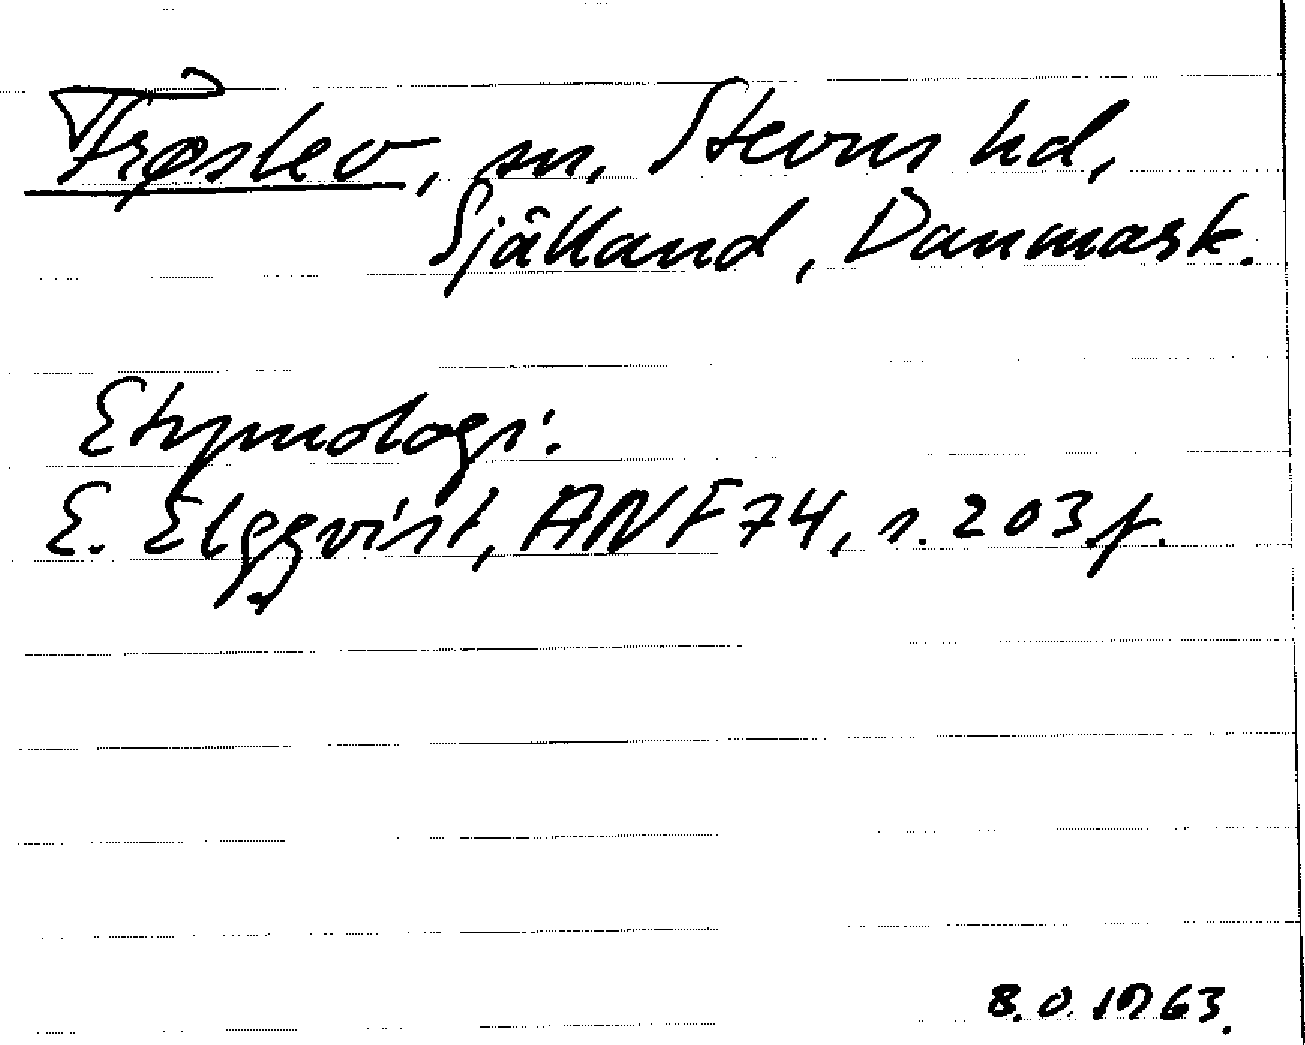 Frøslev, sn, Stevns hd,
Själland, Danmark.
Etymologi:
E. Elgqvist, ANF 74, s. 203 f.
B.O. 1963.